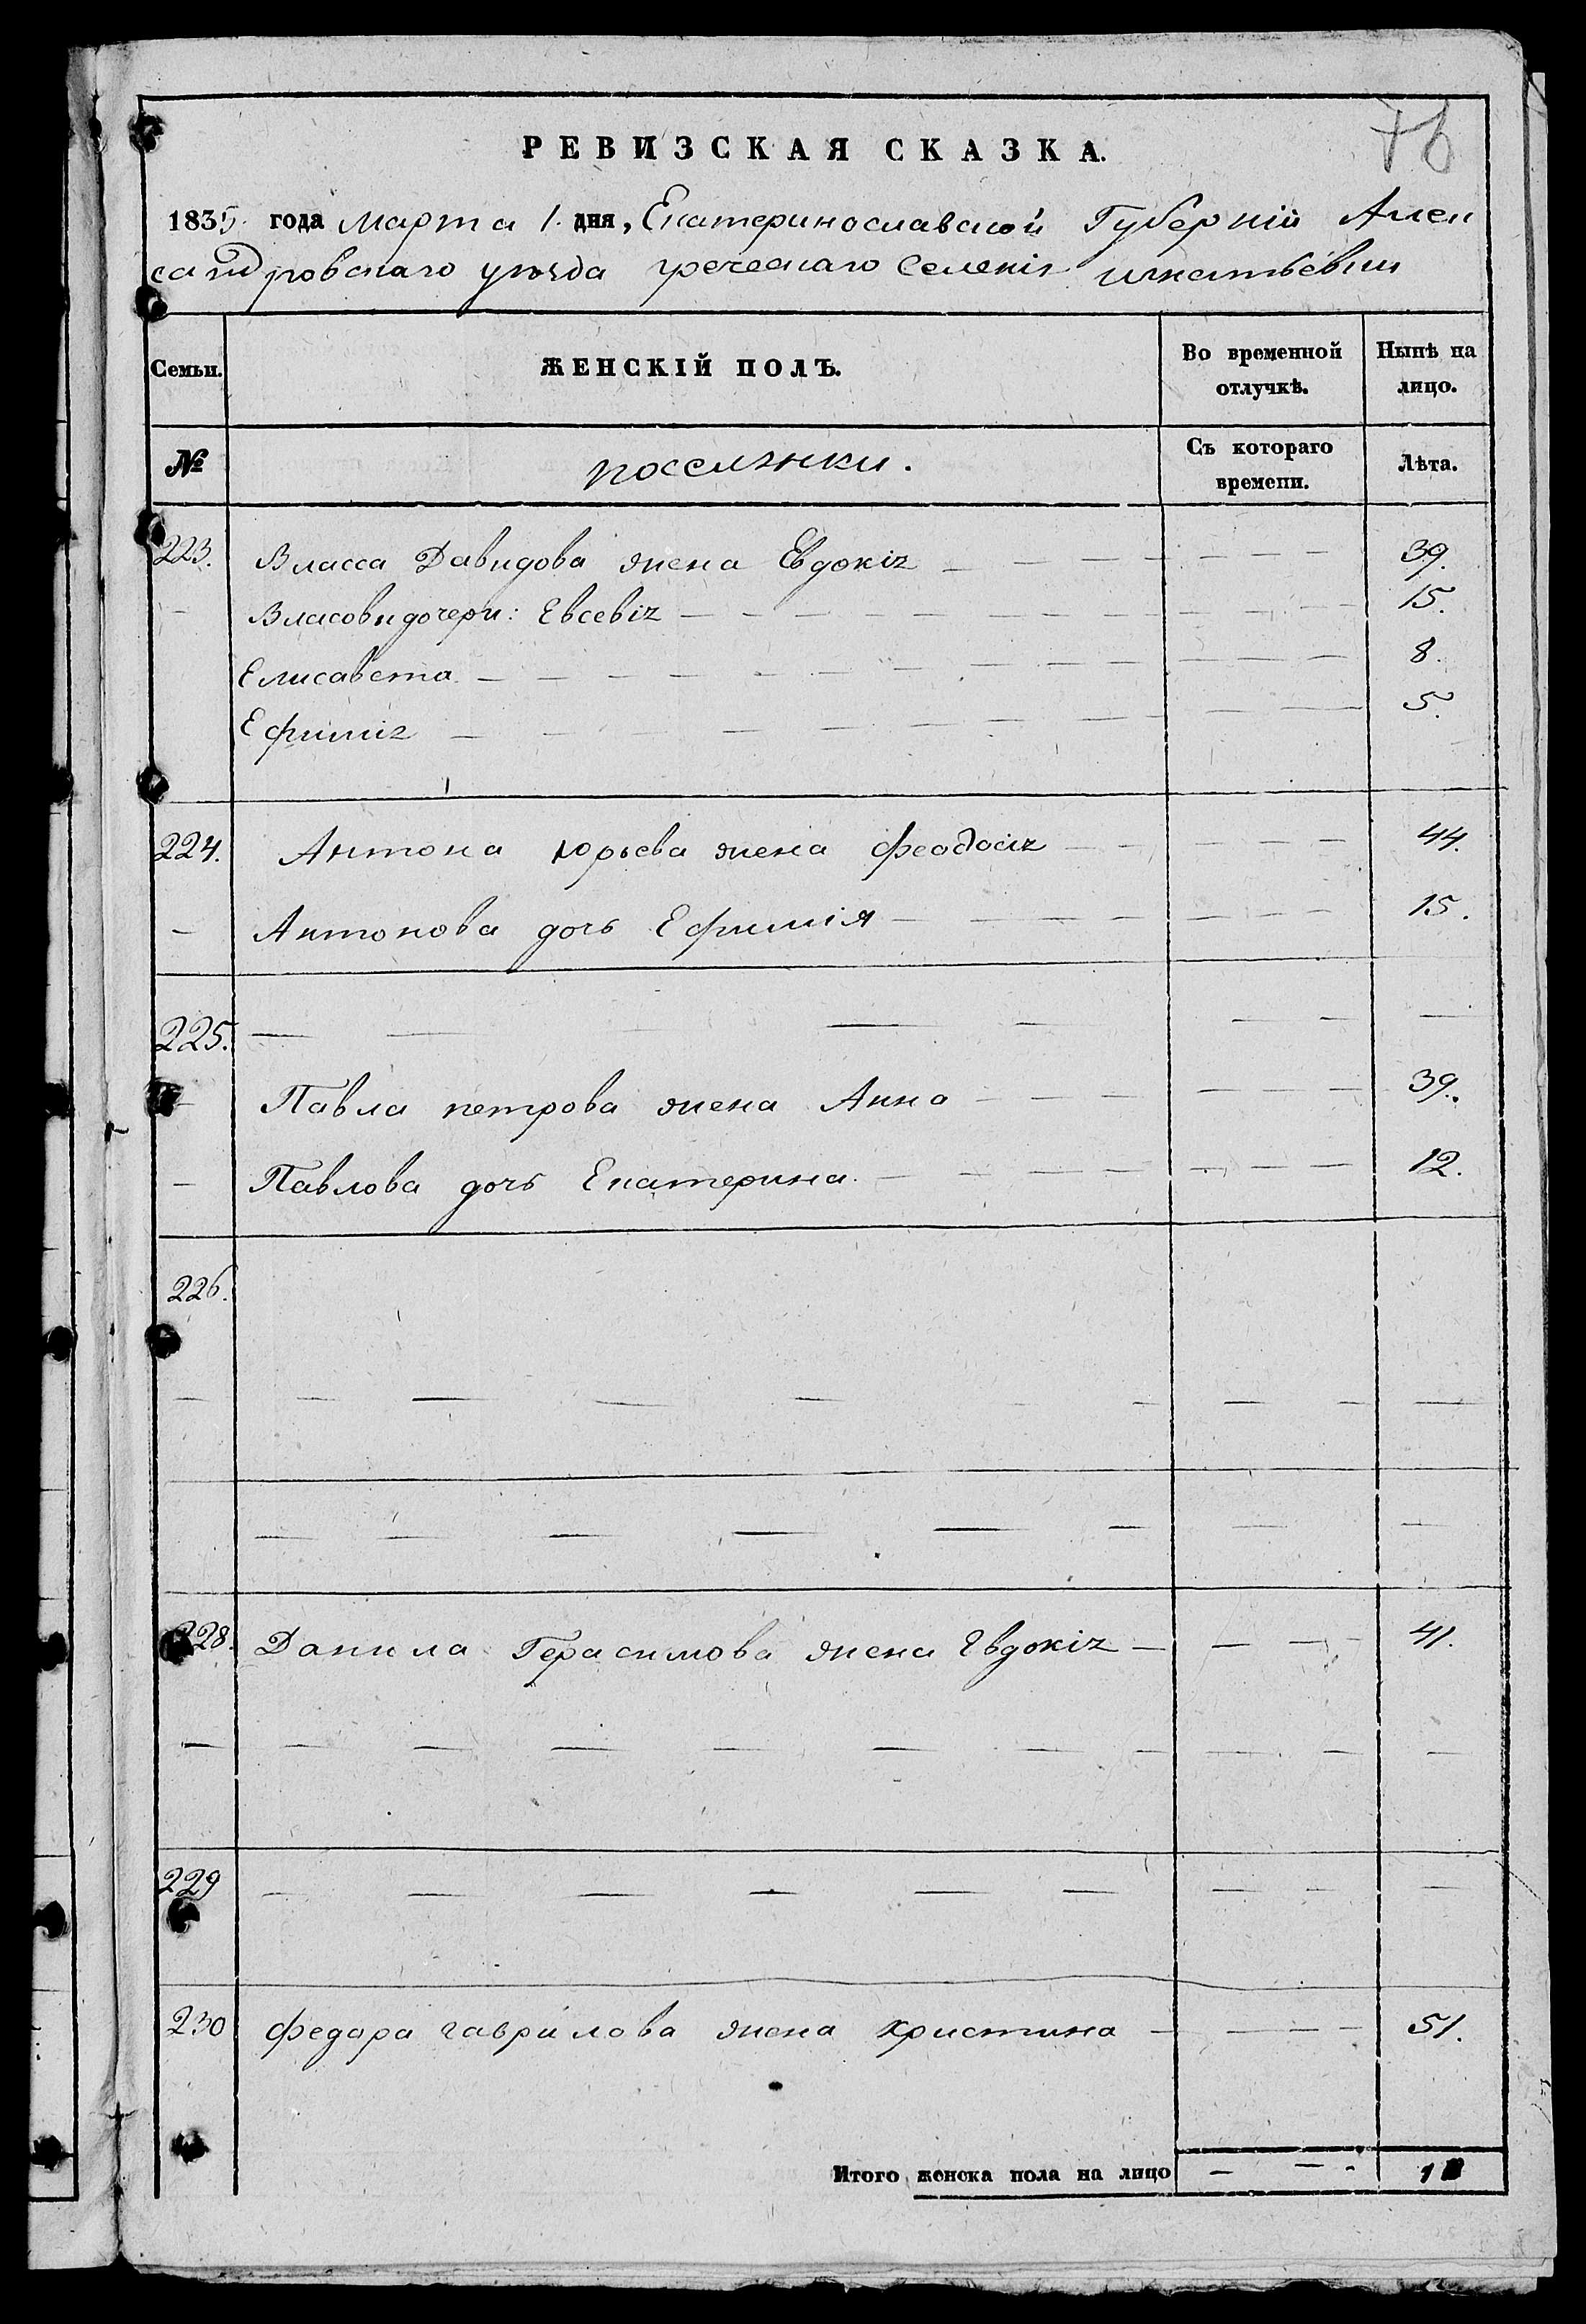 78
РЕВИЗСКАЯ СКАЗКА.
1835 года марта 1. дня, Екатеринославской Губерніи Алек
сандровскаго уѣзда греческаго Селенія игнатьевки
Семьи. ЖЕНСКІЙ ПОЛЪ. Во временной отлучкѣ. Нынѣ на лицо.
№ поселянки. Съ котораго времени. Лѣта.
223. Власса Давидова жена Евдокія — — — — — — 39.
- Власови дочери: Евсевія — — — — — — 15.
Елисавета — — — — — — 8.
Ефимія — — — — — — 5.
224. Антона юрьева жена феодосія — — — — — 44.
— Антонова дочь Ефимія — — — — — — 15.
225. — — — — — — —
— Павла петрова жена Анна — — — — — — 39.
— Павлова дочь Екатерина. — — — — — — 12.
226.
— — — — — — — — —
— — — — — — — —
228. Данила Герасимова жена Евдокія — — — — 41.
— — — — — — — — — — —
229 — — — — — — — — —
230 федара гаврилова жена христина — — — — 51.
Итого женска пола на лицо — — - 1